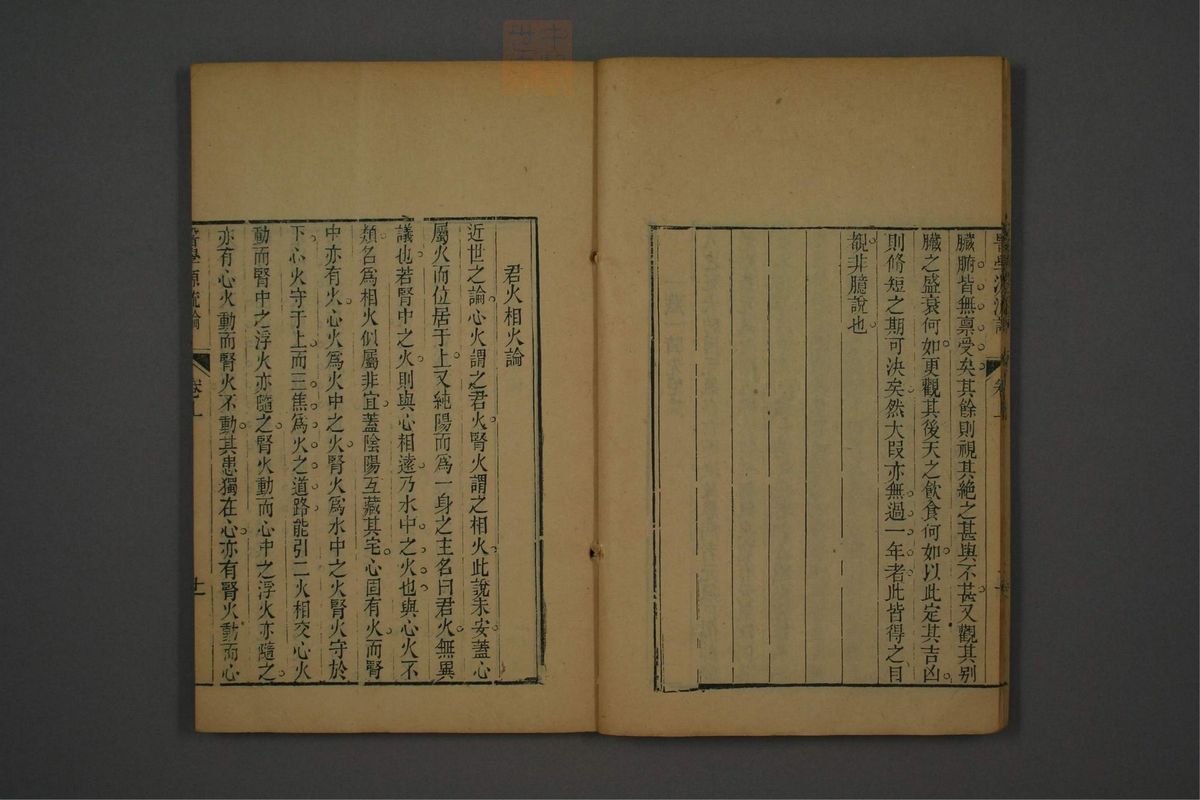 醫學源流論 卷上
臟腑皆無禀受矣其餘則視其絶之甚與不甚又觀其别
臟之盛衰何如更觀其後天之飲食何如以此定其吉凶
則脩短之期可决矣然大段亦無過一年者此皆得之目
覩非臆說也
君火相火論
近世之論心火謂之君火腎火謂之相火此說未安蓋心
屬火而位居于上又純陽而爲一身之主名曰君火無異
議也若腎中之火則與心相遠乃水中之火也與心火不
類名爲相火似屬非宜蓋陰陽互藏其宅心固有火而腎
中亦有火心火爲火中之火腎火爲水中之火腎火守於
下心火守于上而三焦爲火之道路能引二火相交心火
動而腎中之浮火亦隨之腎火動而心中之浮火亦隨之
亦有心火動而腎火不動其患獨在心亦有腎火動而心
醫學源流論 卷上